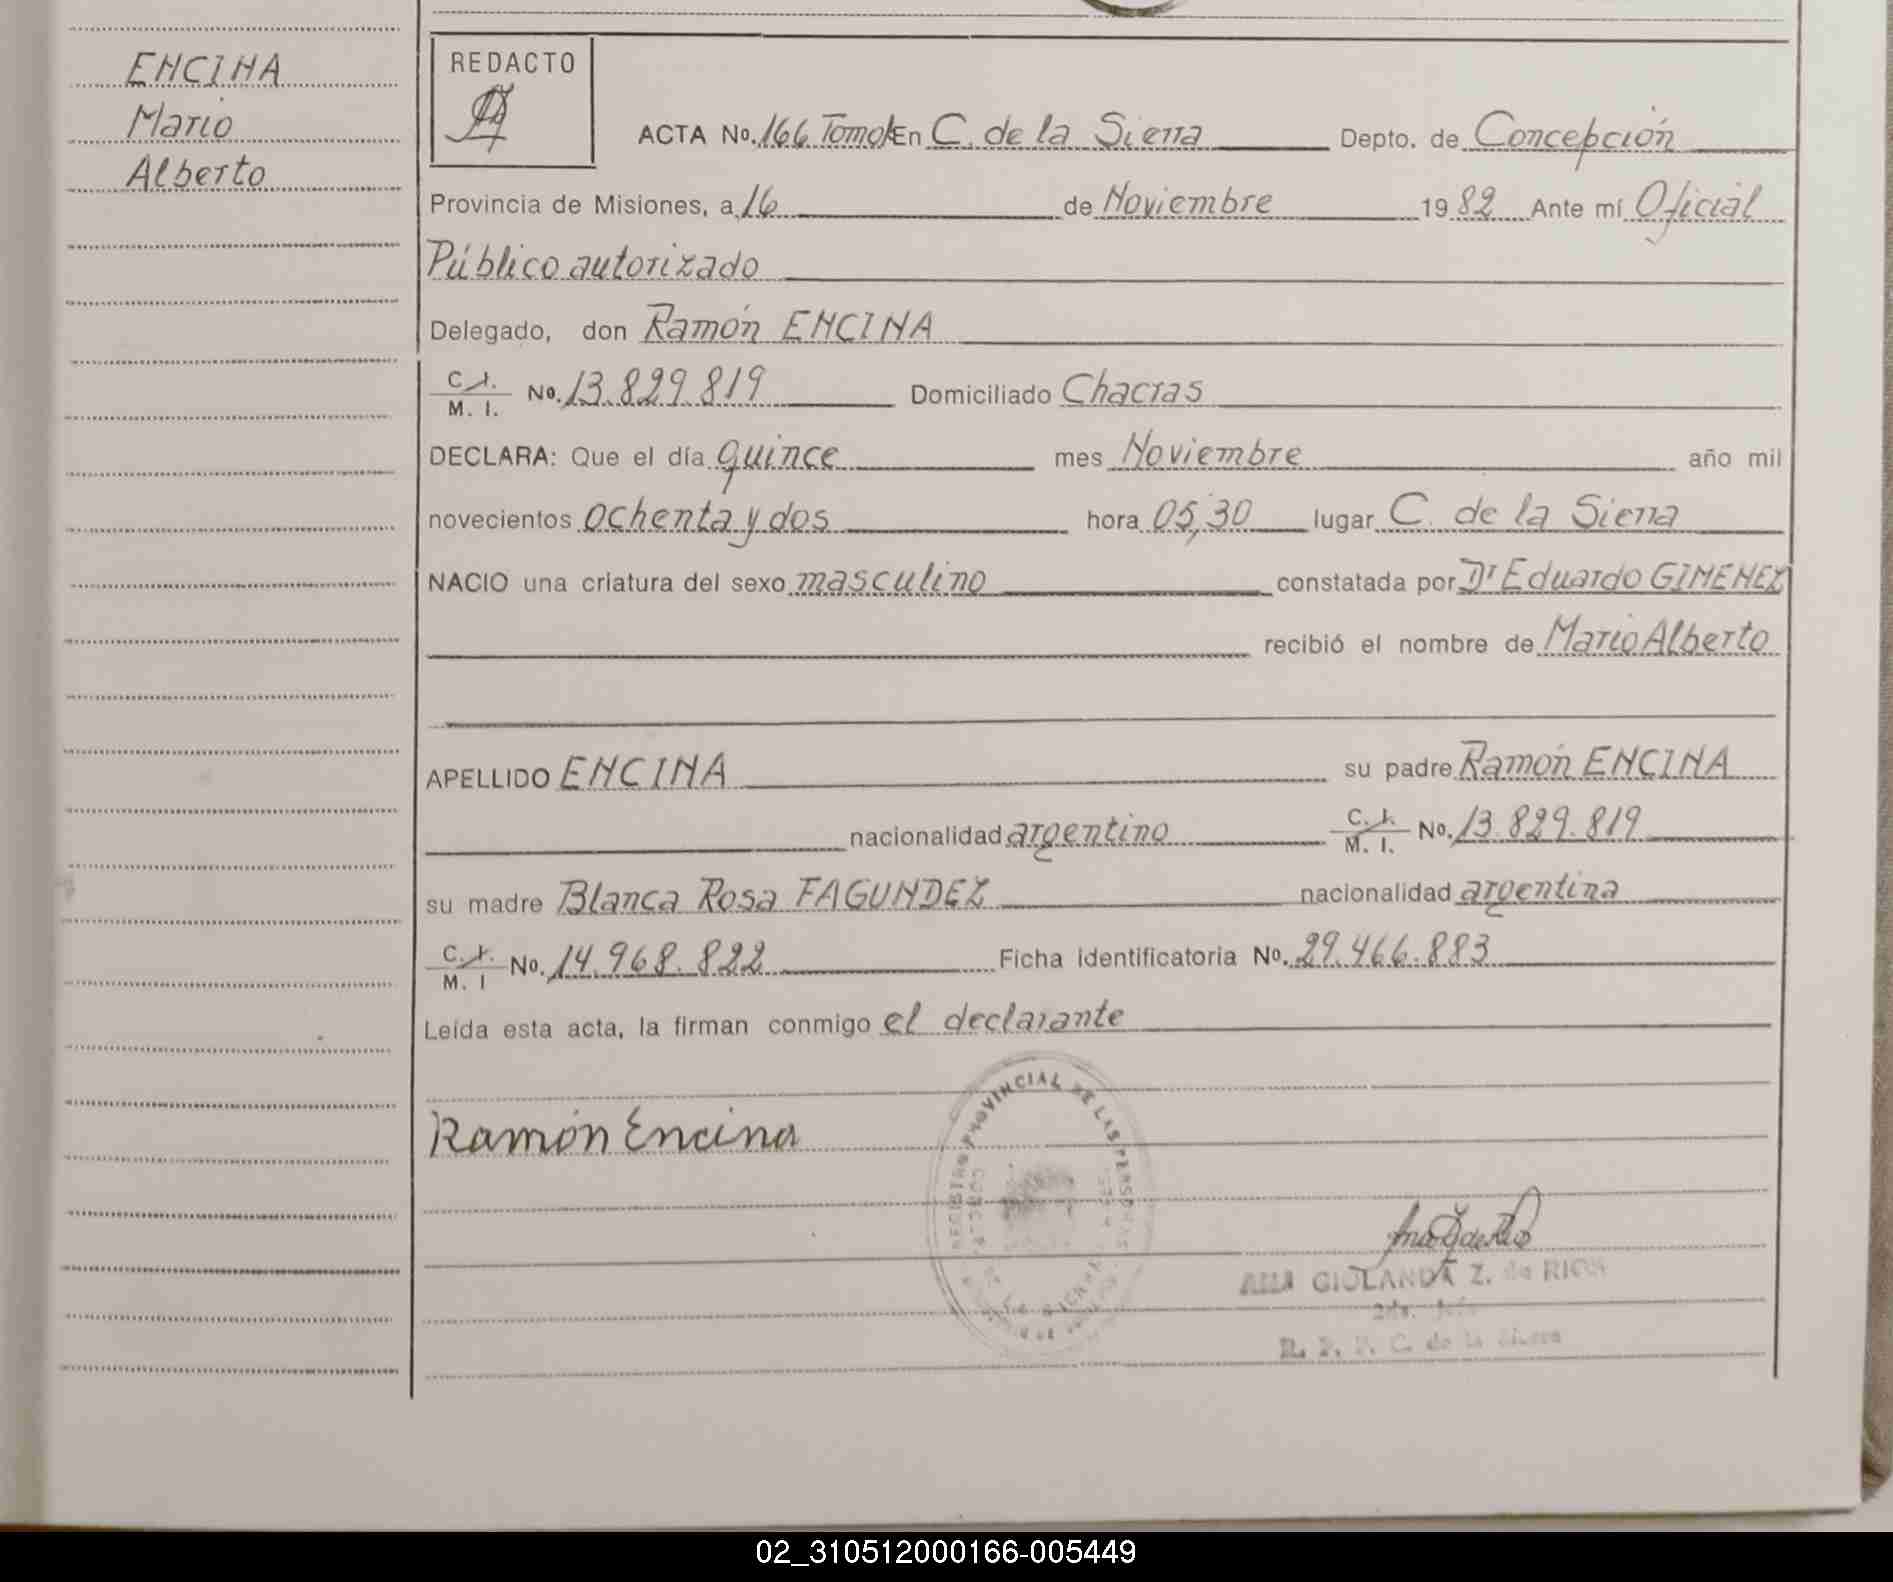 ENCINA
Mario
Alberto
REDACTO
ACTA No. 166 Tomo I En C. de la Sierra Depto. de Concepción
Provincia de Misiones, a 16 de Noviembre 1982 Ante mí Oficial
Público autorizado
Delegado, don Ramón ENCINA
C. I.
M. I. No. 13.829.819 Domiciliado Chacras
DECLARA: Que el día quince mes Noviembre año mil
novecientos ochenta y dos hora 05,30 lugar C. de la Sierra
NACIO una criatura del sexo masculino constatada por Dr Eduardo GIMENEZ
recibió el nombre de Mario Alberto
APELLIDO ENCINA su padre Ramón ENCINA
nacionalidad argentino C. I. M. I. No. 13.829.819
su madre Blanca Rosa FAGUNDEZ nacionalidad argentina
C. I. M. I No. 14.968.822 Ficha identificatoria No. 29.466.883
Leída esta acta, la firman conmigo el declarante
REGISTRO PROVINCIAL DE LAS PERSONAS
Ramón Encina
ANA GIOLANDA Z. de RIOS
C. de la Sierra
02_310512000166-005449